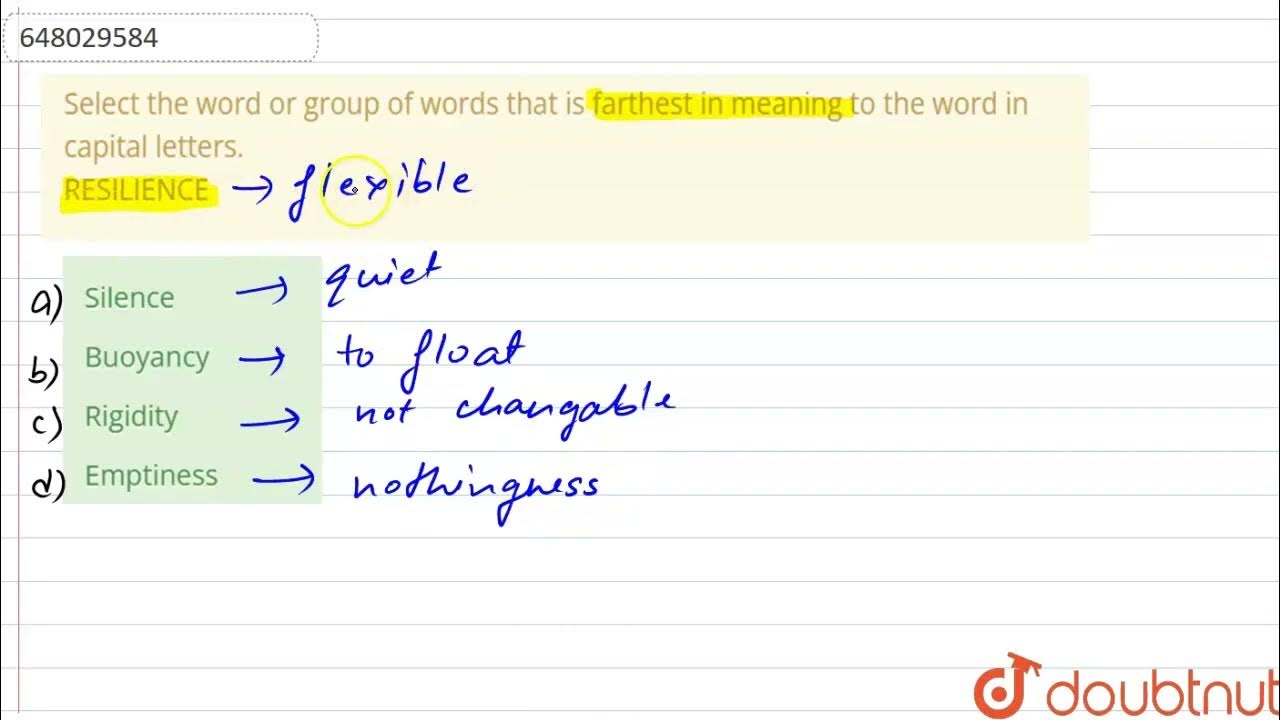 648029584
Select the word or group of words that is farthest in meaning to the word in
capital letters.
RESILIENCE → flexible
a) Silence → quiet
b) Buoyancy → to float
c) Rigidity → not changable
d) Emptiness → nothingness
doubtnut